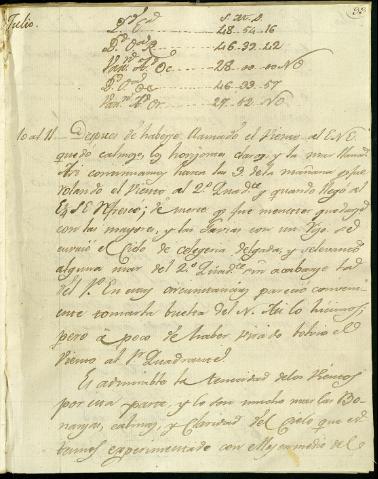 Julio.
48 - 54 - 16
46 - 32 - 42
28 - 00 - 00 NO
46 - 33 - 57
27 - 52 NO
10 al 11. Depues de haberse llamado el Viento al ENE.
quedó calmoso, los horizontes claros, y la mar llana
Asi continuamos hasta las 3. de la mañana q.e fue
rolando el Viento al 2.o Quad.te y quando llegó al
E¼SE refrescó; de suerte q.e fue menester quedarse
con las mayores, y las Gavias con un rizo. se
cubrió el Cielo de celageria delgada, y
alguna mar del 2.o Quad.te sin acabarse la
del 1.o En estas circunstancias pareció conveni-
ente tomar la buelta del N. Asi lo hicimos,
pero à poco de haber virado bolvió el
Viento al 1.r Quadrante.
Es admirable la tenacidad de los Vientos
por esta parte, y lo son mucho mas las Bo-
nanzas, calmas, y claridad del Cielo que es-
tamos experimentado con el